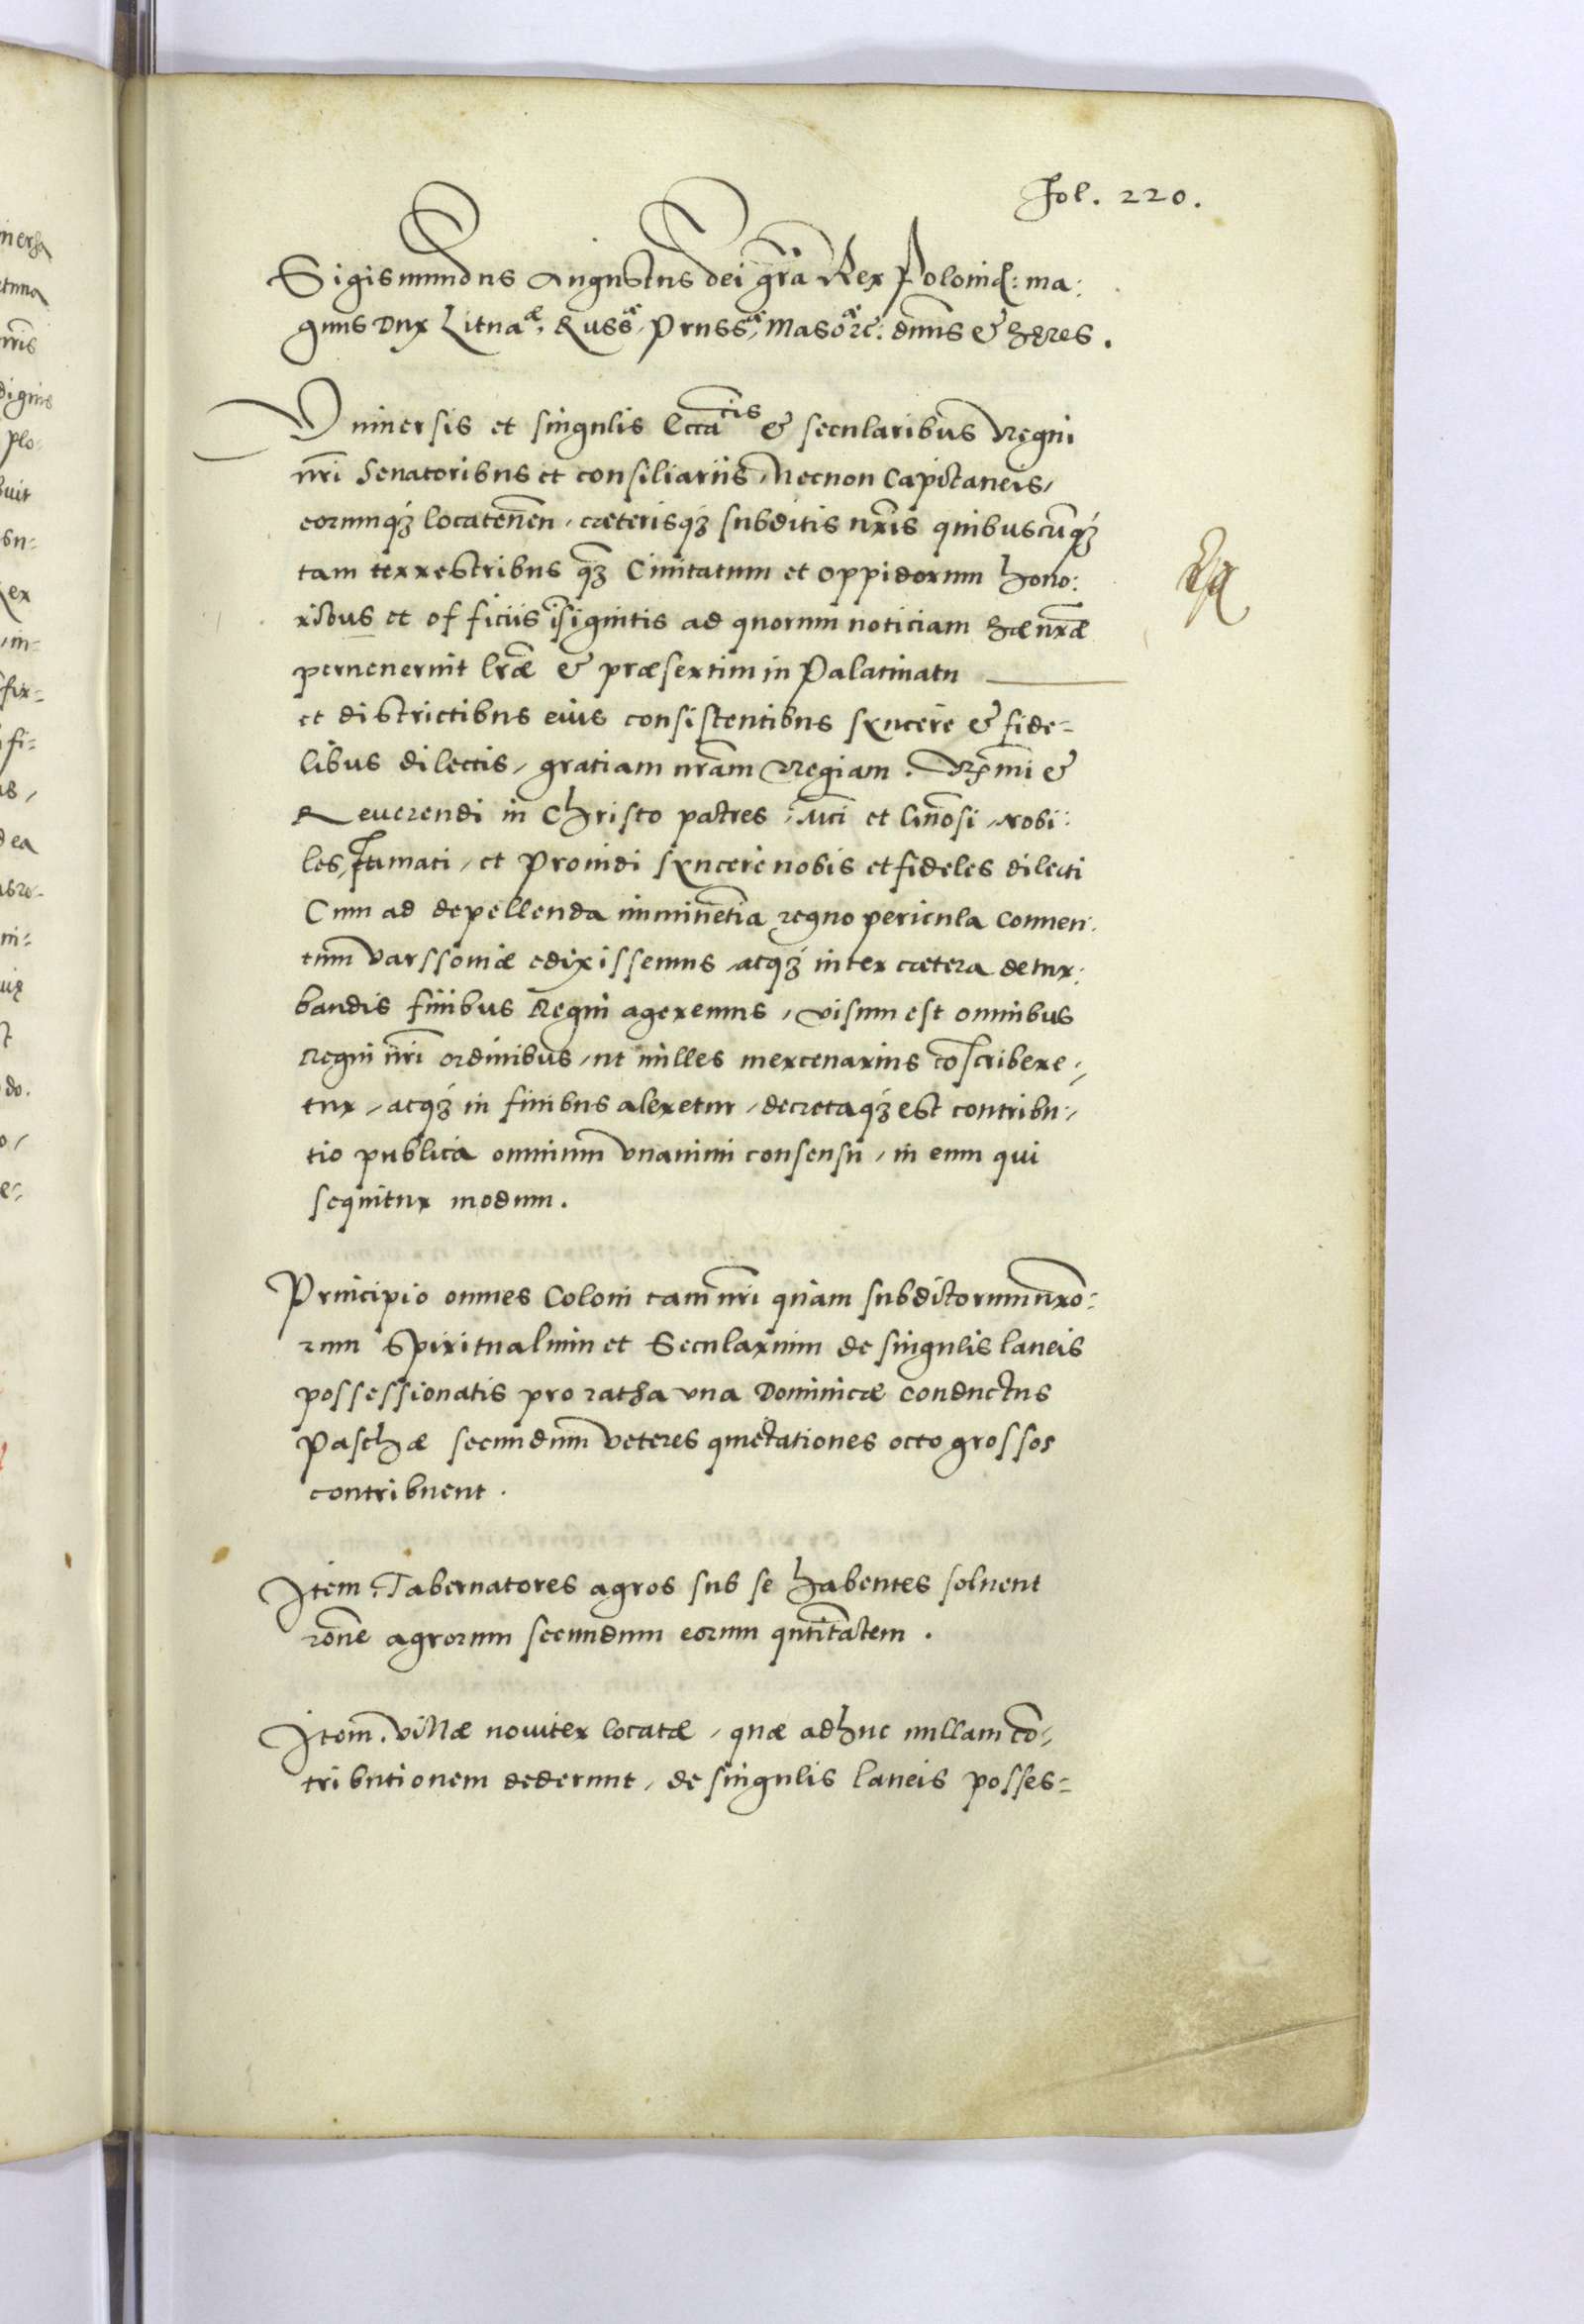 Fol. 220.
Sigismundus Augustus dei gr̃a Rex Poloniæ: ma:
gnus Dux Lituaæ, Russæ, Prussæ, Masoæ ꝛc̃: dñus & hęres.
Vniuersis et singulis Eccãcis & secularibus Regni
nr̃i Senatoribus et consiliariis, Necnon Capitaneis,
eorumqꝫ locatenẽn, cæterisqꝫ subditis nr̃is quibuscũqꝫ
tam terrestribus qꝫ̃ Ciuitatum et oppidorum hono:
ribus et officiis ĩsignitis ad quorum noticiam hæ nr̃æ
peruenerint lr̃æ & præsertim in Palatinatu
et districtibus eius consistentibus syncere & fide-
libus dilectis, gratiam nr̃am Regiam. Rx̃mi &
Reuerendi in Christo patres, Mci et Gñosi, nobi:
les, famati, et Prouidi syncere nobis et fideles dilecti
Cum ad depellenda imminẽtia regno pericula Conuen:
tum Varssouiæ edixissemus, atqꝫ inter cætera de tur:
bandis finibus Regni ageremus, visum est omnibus
Regni nr̃i ordinibus, ut milles mercenarius cõscribere:
tur, atqꝫ in finibus aleretur, decretaqꝫ est contribu:
tio publica omnium vnanimi consensu, in eum qui
sequitur modum.
Principio omnes Coloni tam nr̃i quam subditorum nr̃o:
rum Spiritualium et Secularium de singulis laneis
possessionatis pro ratha vna Dominicæ Conductus
Paschæ secundum veteres quietationes octo grossos
contribuent.
Item Tabernatores agros sub se habentes soluent
rõne agrorum secundum eorum qũtitatem.
Item. villæ nouiter locatæ, quæ adhuc nullam cõ,
tributionem dederunt, de singulis laneis posses-